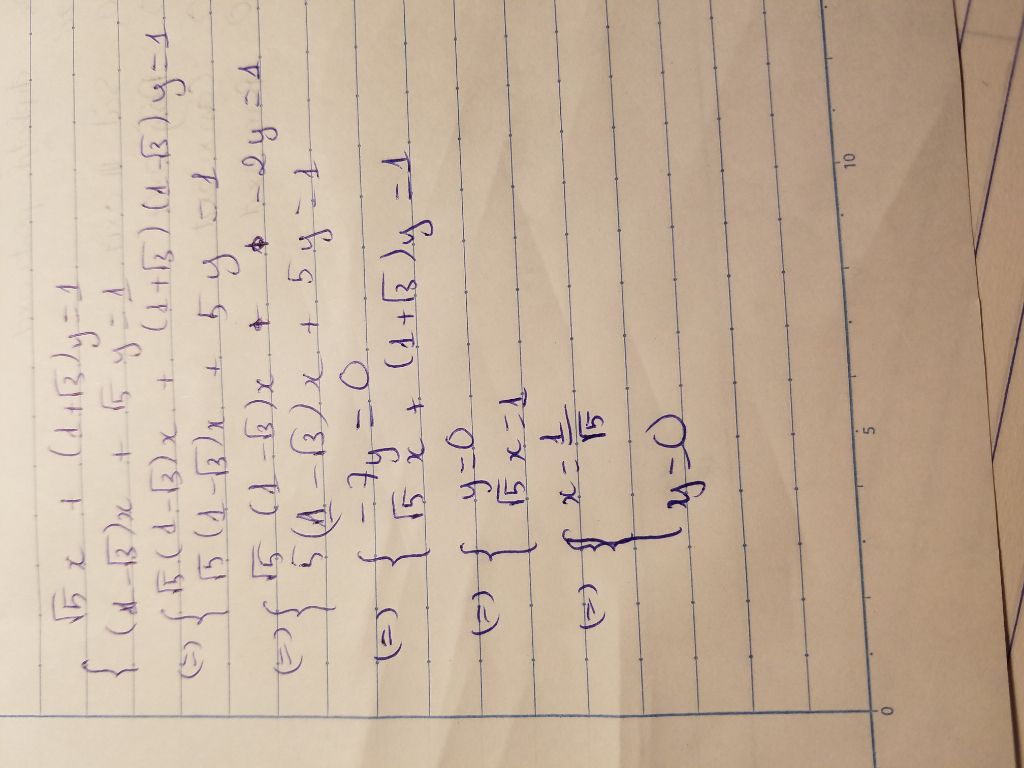 { √5 x + (1+√3)y=1
(1-√3)x + √5 y=1
(=) { √5(1-√3)x + (1+√3)(1-√3)y=1
√5(1-√3)x + 5y=1
(=) { √5 (1-√3)x -2y=1
5(1-√3)x + 5y=1
(=) { -7y=0
√5 x + (1+√3)y=1
(=) { y=0
√5 x=1
(=) { x=1/√5
y=0
0 5 10